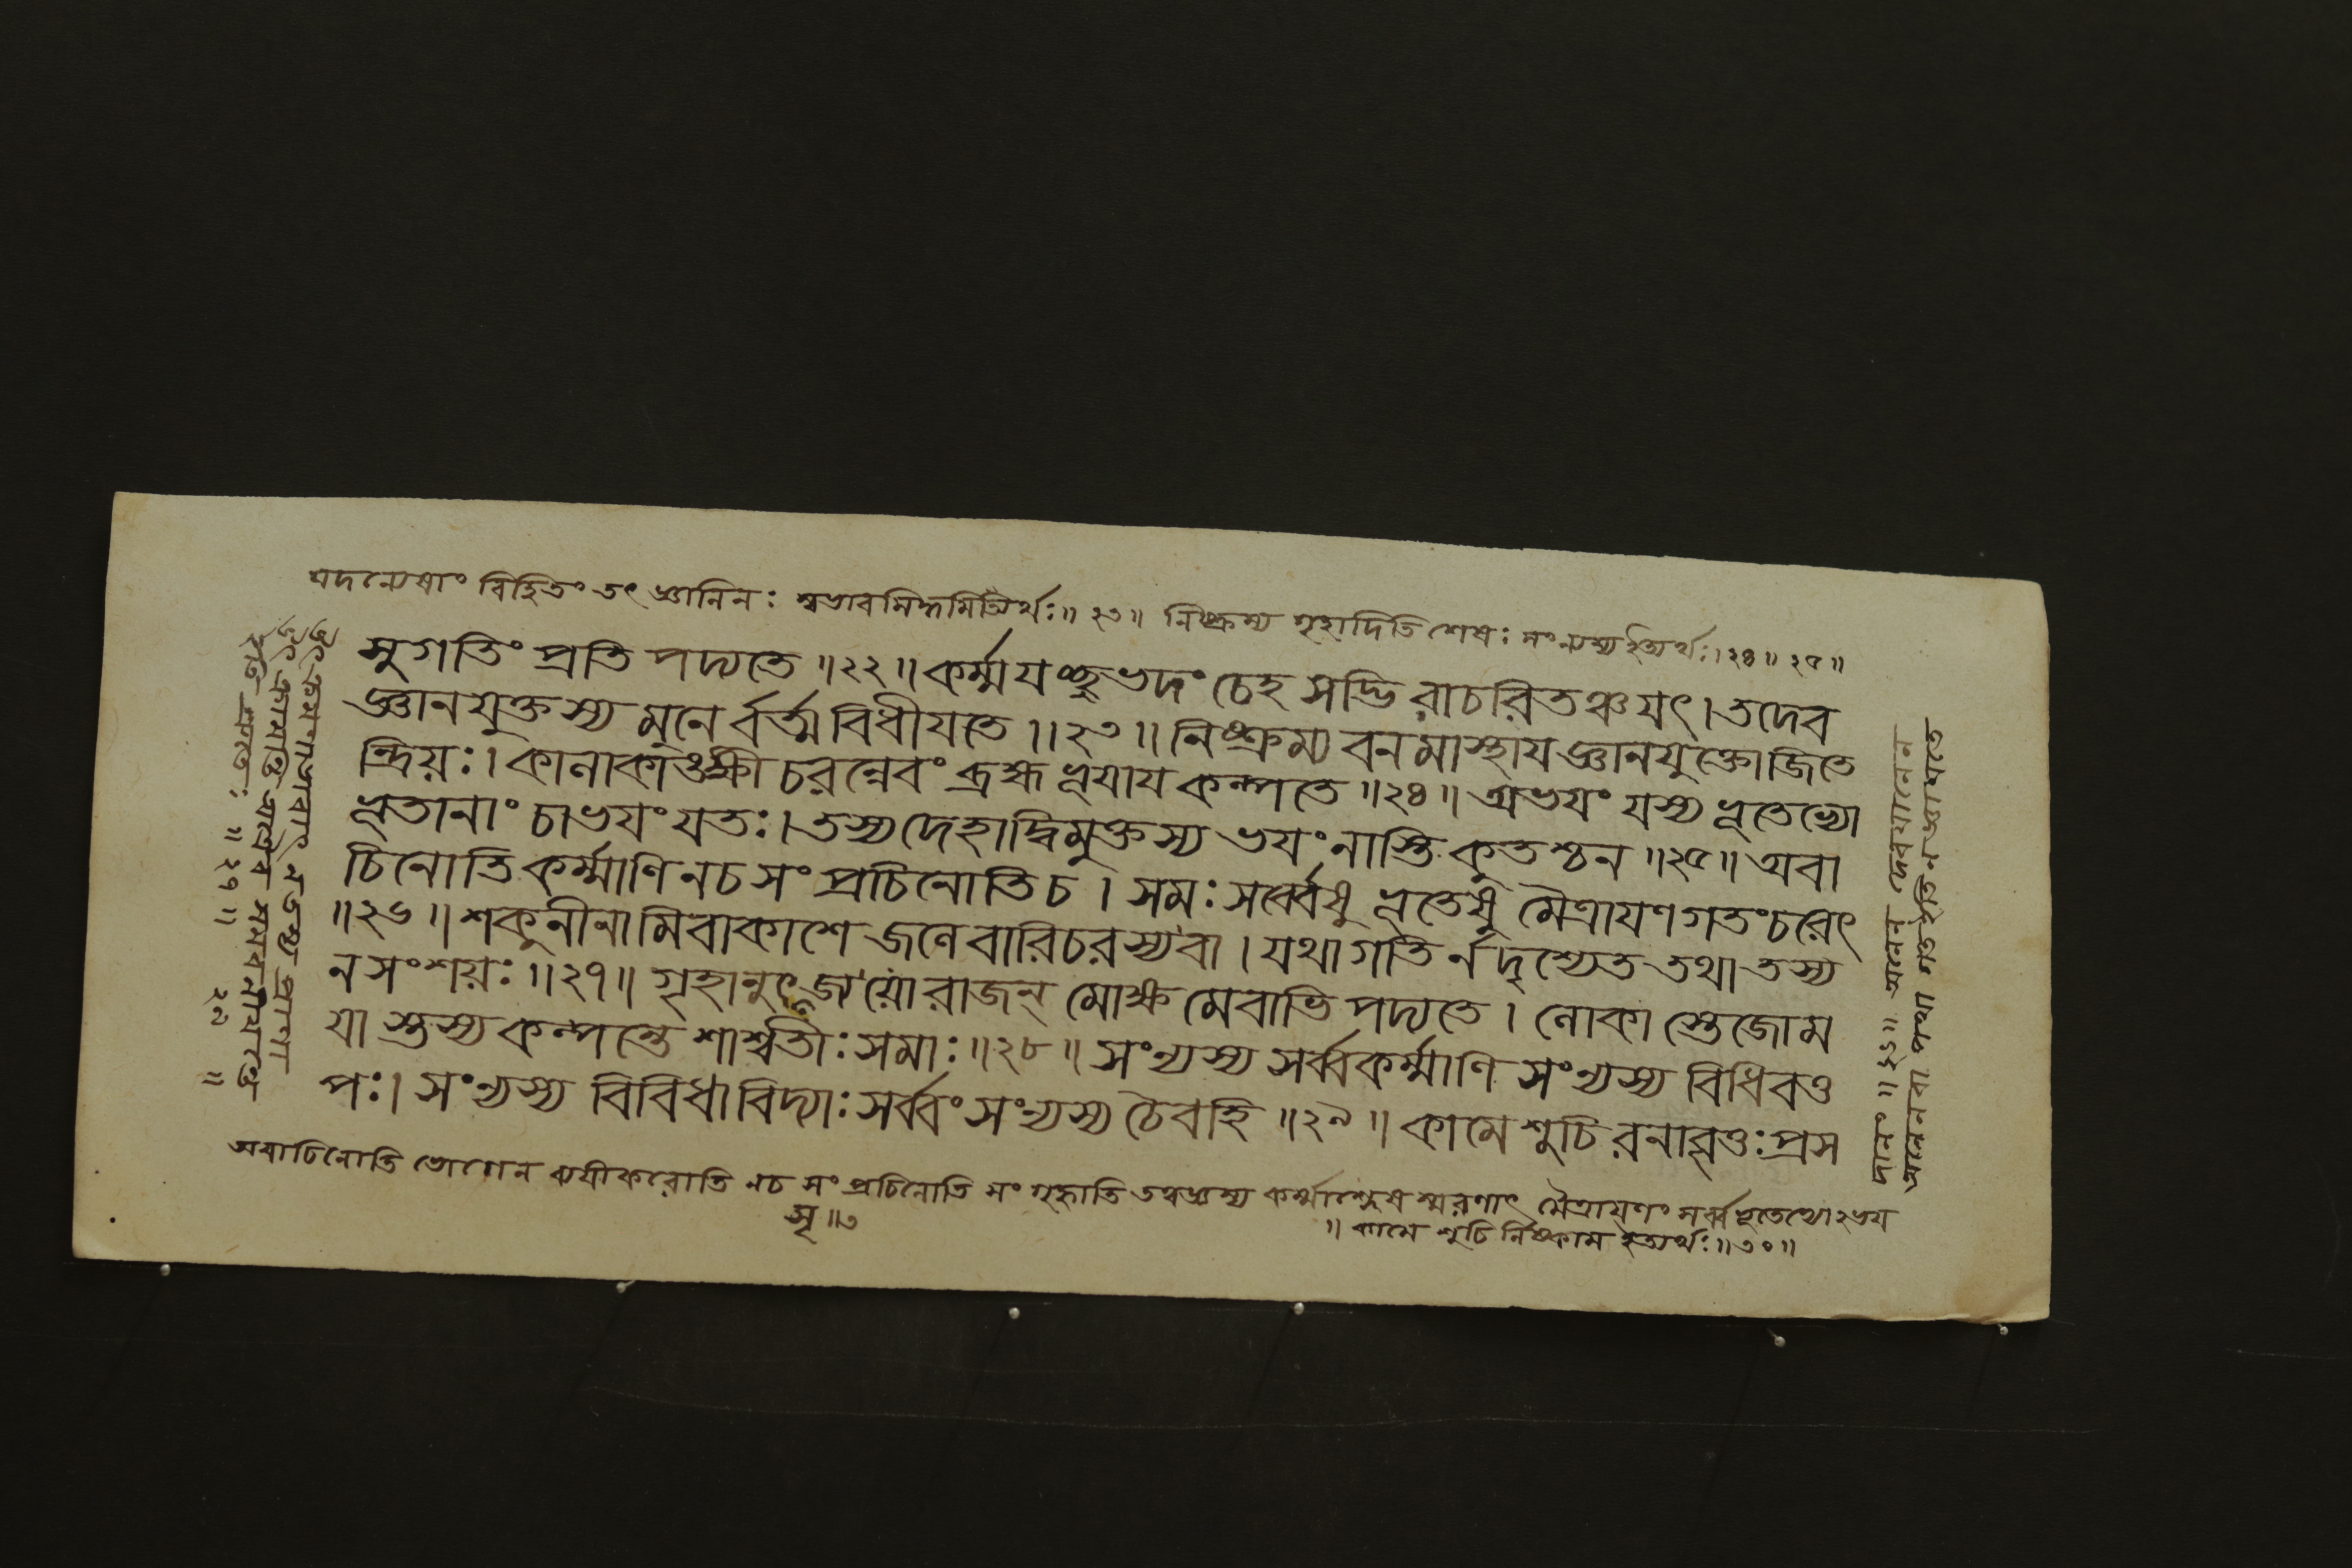 যদন্যেষাং বিহিতং তৎ জ্ঞানিনঃ স্বভাবসিদ্ধমিত্যর্থঃ॥ ২৩॥ নিষ্ক্রম্য গৃহাদিতি শেষঃ সংন্যস্য ইত্যর্থঃ। ২৪॥ ২৫॥
সুগতিং প্রতিপদ্যতে॥২২॥কর্ম্ম যচ্ছুভদং চেহ সদ্ভিরাচরিতঞ্চ যৎ।তদেব
জ্ঞানযুক্তস্য মুনের্বর্ত্ম বিধীযতে॥২৩॥ নিষ্ক্রম্য বনমাস্থায জ্ঞানযুক্তো জিতে
ন্দ্রিয়ঃ। কালাকাঙ্ক্ষী চরন্নেবং ব্রহ্মভূযায কল্পতে॥২৪॥ অভযং যস্য ভূতেভ্যো
ভূতানাং চাভযং যতঃ।তস্য দেহাদ্বিমুক্তস্য ভযং নাস্তি কুতশ্চন॥২৫॥ অবা
চিনোতি কর্ম্মাণি ন চ সংপ্রচিনোতি চ। সমঃ সর্ব্বেষু ভূতেষু মৈত্রাযণগতং চরেৎ
॥২৬॥ শকুনীনামিবাকাশে জলে বারিচরস্য বা। যথা গতির্ন দৃশ্যেত তথা তস্য
ন সংশয়ঃ॥২৭॥ গৃহানুৎসৃজ্য যো রাজন্ মোক্ষমেবাভিপদ্যতে। লোকাস্তেজোম
যাস্তস্য কল্পন্তে শাশ্বতীঃ সমাঃ॥২৮॥ সংন্যস্য সর্ব্বকর্ম্মাণি সংন্যস্য বিধিবত্ত
পঃ। সংন্যস্য বিবিধা বিদ্যাঃ সর্ব্বং সংন্যস্য চৈব হি॥২৯॥ কামে শুচিরনাবৃত্তঃ প্রস
অবাচিনোতি ভোগেন ক্ষযীকরোতি ন চ সংপ্রচিনোতি সংগৃহ্নাতি তত্বজ্ঞস্য কর্ম্মাশ্লেষস্মরণাৎ মৈত্রাযণং সর্ব্বভূতেভ্যোঽভয
সৃ॥৩
॥ কামে শুচি র্নিষ্কাম ইত্যর্থঃ॥৩০॥
দানং॥২৬॥
ইতি শ্রুতেঃ॥২৭॥